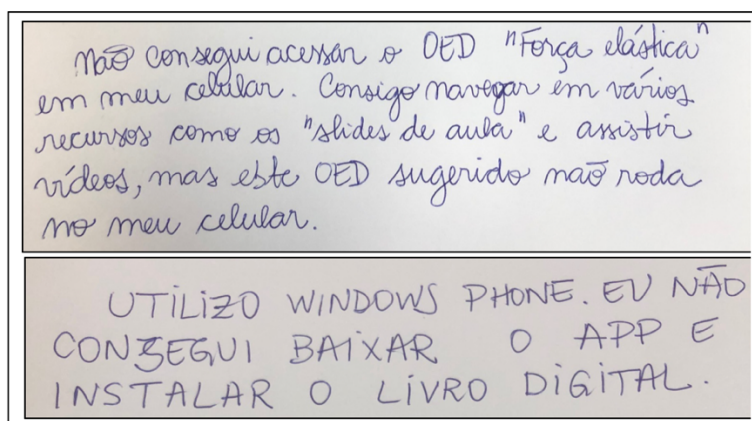 Não consegui acessar o OED "Força elástica"
em meu celular. Consigo navegar em vários
recursos como os "slides de aula" e assistir
vídeos, mas este OED sugerido não roda
no meu celular.
UTILIZO WINDOWS PHONE. EU NÃO
CONSEGUI BAIXAR O APP E
INSTALAR O LIVRO DIGITAL.